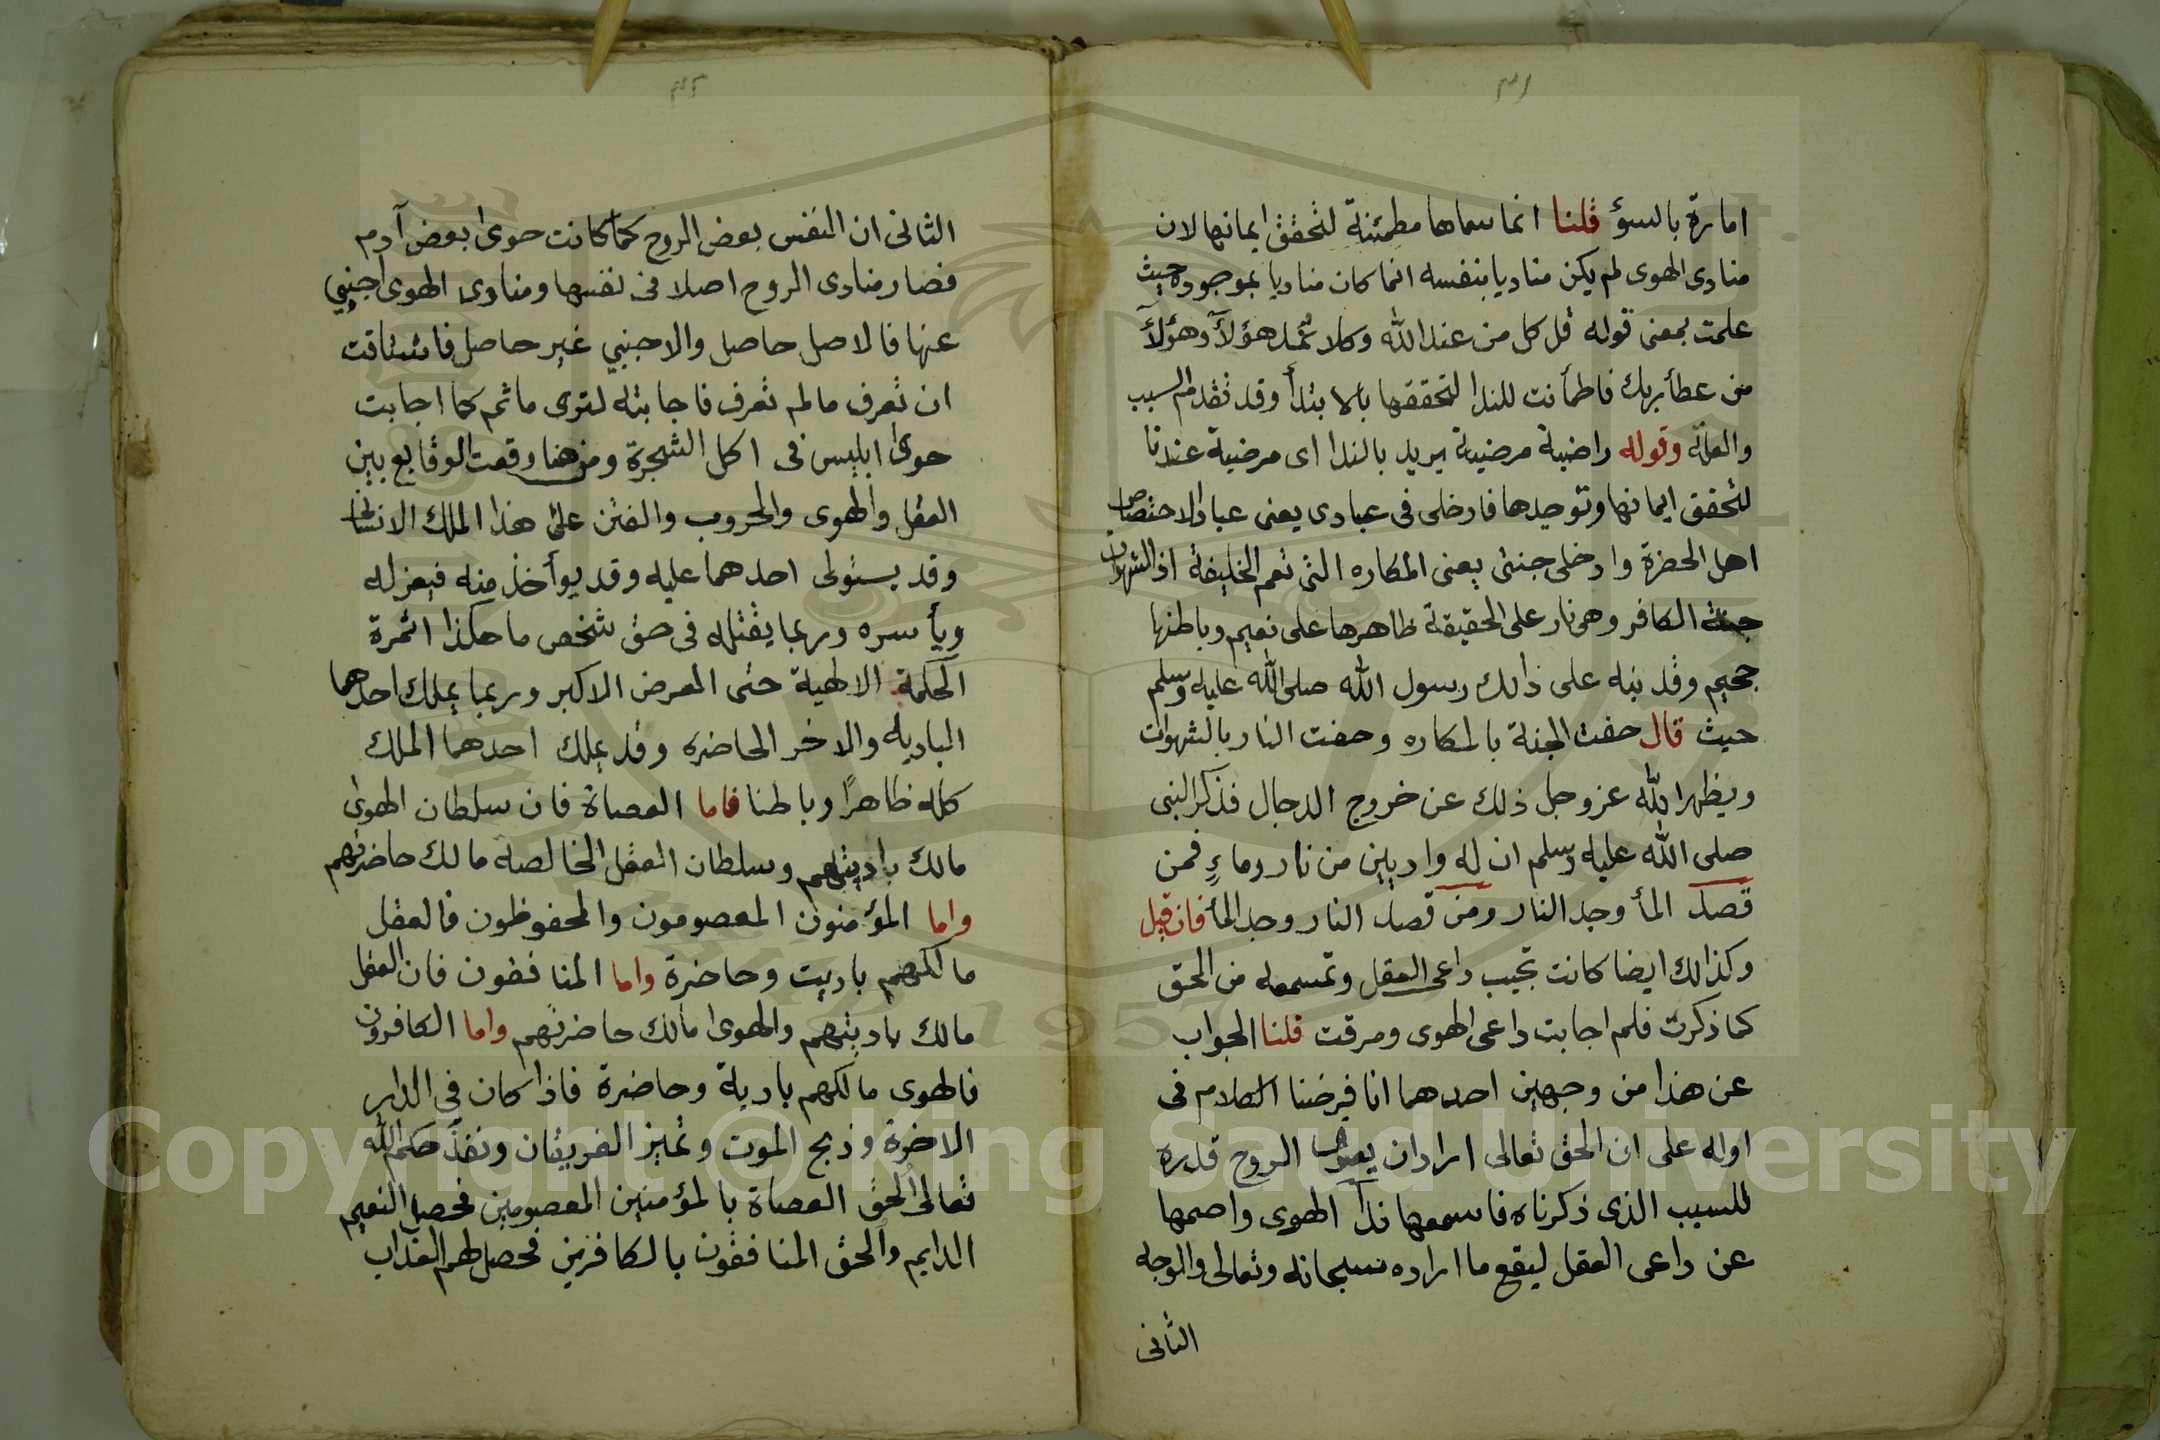 امارة بالسؤ قلنا انما سماها مطمئنة لتحقق ايمانها لان
منادى الهوى لم يكن مناديا بنفسه انما كان مناديا بموجوده حيث
علمت بمعنى قوله قل كل من عند الله وكلا نمد هؤلآ وهؤلآ
من عطأ ربك فاطمأنت للندا لتحققها بالابتدأ وقد تقدم السبب
والعلة وقوله راضية مرضية يريد بالندا اى مرضية عندنا
لتحقق ايمانها وتوحيدها فادخلى فى عبادى يعنى عباد الاختصاص
اهل الحضرة وادخلى جنتى يعنى المكاره التى تعم الخليفة اذ الشهوات
جنة الكافر وهى نار على الحقيقة ظاهرها على نعيم وباطنها
جحيم وقد نبه على ذالك رسول الله صلى الله عليه وسلم
حيث قال حفت الجنة بالمكاره وحفت النار بالشهوات
ويظهر الله عز وجل ذلك عن خروج الدجال فذكر النبى
صلى الله عليه وسلم ان له واديين من نار وماءٍ فمن
قصد المأ وجد النار ومن قصد النار وجد المأ فان قيل
وكذالك ايضا كانت تجيب داعى العقل وتسمعه من الحق
كما ذكرت فلم اجابت داعى الهوى ومرقت قلنا الجواب
عن هذا من وجهين احدهما انا فرضنا الكلام فى
اوله على ان الحق تعالى اراد ان يعرف الروح قدره
للسبب الذى ذكرناه فاسمعها ندآ الهوى واصمها
عن داعى العقل ليقع ما اراده سبحانه وتعالى والوجه
الثانى
الثانى ان النفس بعض الروح كما كانت حوى بعض آدم
فصار منادى الروح اصلا فى نفسها ومنادى الهوى اجنبي
عنها فالاصل حاصل والاجنبي غير حاصل فاشتاقت
ان تعرف مالم تعرف فاجابته لترى ما ثم كما اجابت
حوى ابليس فى اكل الشجرة ومن هنا وقعت الوقايع بين
العقل والهوى والحروب والفتن على هذا الملك الانسانى
وقد يستولى احدهما عليه وقد يوأخذ منه فيعزله
ويأسره وربما يقتله فى حق شخص ما هكذا اثمرة
الحكمة الالهية حتى العرض الاكبر وربما يملك احدهما
الباديه والاخر الحاضره وقد يملك احدهما الملك
كله ظاهرًا وباطنا فاما العصاة فان سلطان الهوى
مالك باديتهم وسلطان العقل الخالصه مالك حاضرتهم
واما المؤمنون المعصومون والمحفوظون فالعقل
مالكهم باديت وحاضرة واما المنافقون فان العقل
مالك باديتهم والهوى مالك حاضرتهم واما الكافرون
فالهوى مالكهم بادية وحاضرة فاذا كان فى الدار
الاخرة وذبح الموت وتميز الفريقان ونفذ حكم الله
تعالى الحق العصاة بالمؤمنين المعصومين فحصل النعيم
الدايم والحق المنافقون بالكافرين فحصل لهم العذاب
1957
Copyright © King Saud University